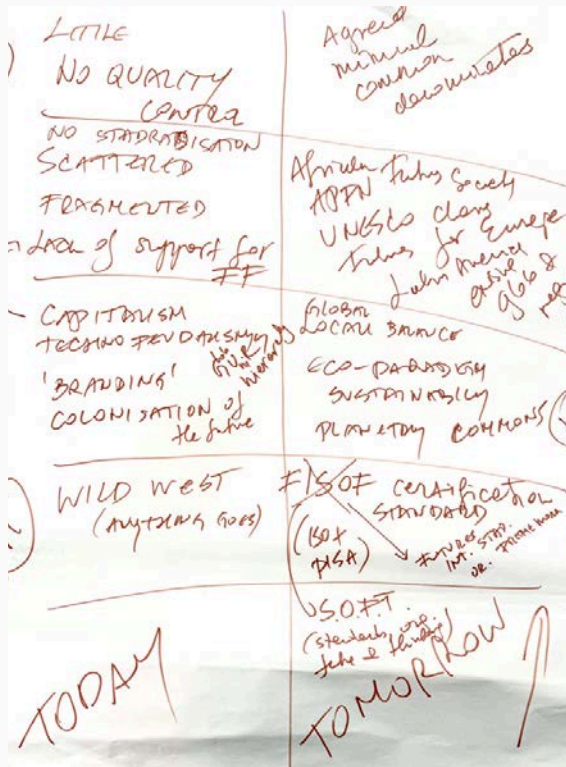 LITTLE
NO QUALITY
CONTROL
NO STADRADISATION
SCATTERED
FRAGMENTED
Lack of support for
FF
CAPITALISM
TECHNO FEUDALISM
'BRANDING'
COLONISATION of
the future
WILD WEST
(ANYTHING GOES)
TODAY
Agreed
minimal
common
denominators
African Futures Society
APFN
UNESCO chairs
Futures for Europe
Latin America
GLOBAL
LOCAL BALANCE
ECO-PARADIGM
SUSTAINABILITY
PLANETARY COMMONS
FISOF CERTIFICATION
STANDARD
(ISO+
PISA)
FUTURES
INT. STAD.
OR.
S.O.F.T.
TOMORROW